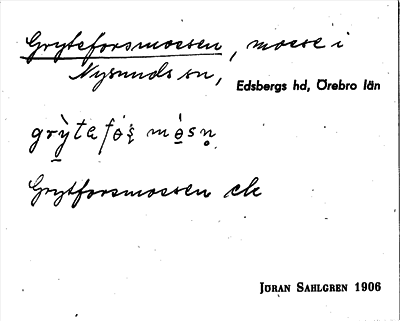 Gryteforsmossen, mosse i
Nysunds sn,
Edsbergs hd, Örebro län
Grytforsmossen ek
JÖRAN SAHLGREN 1906